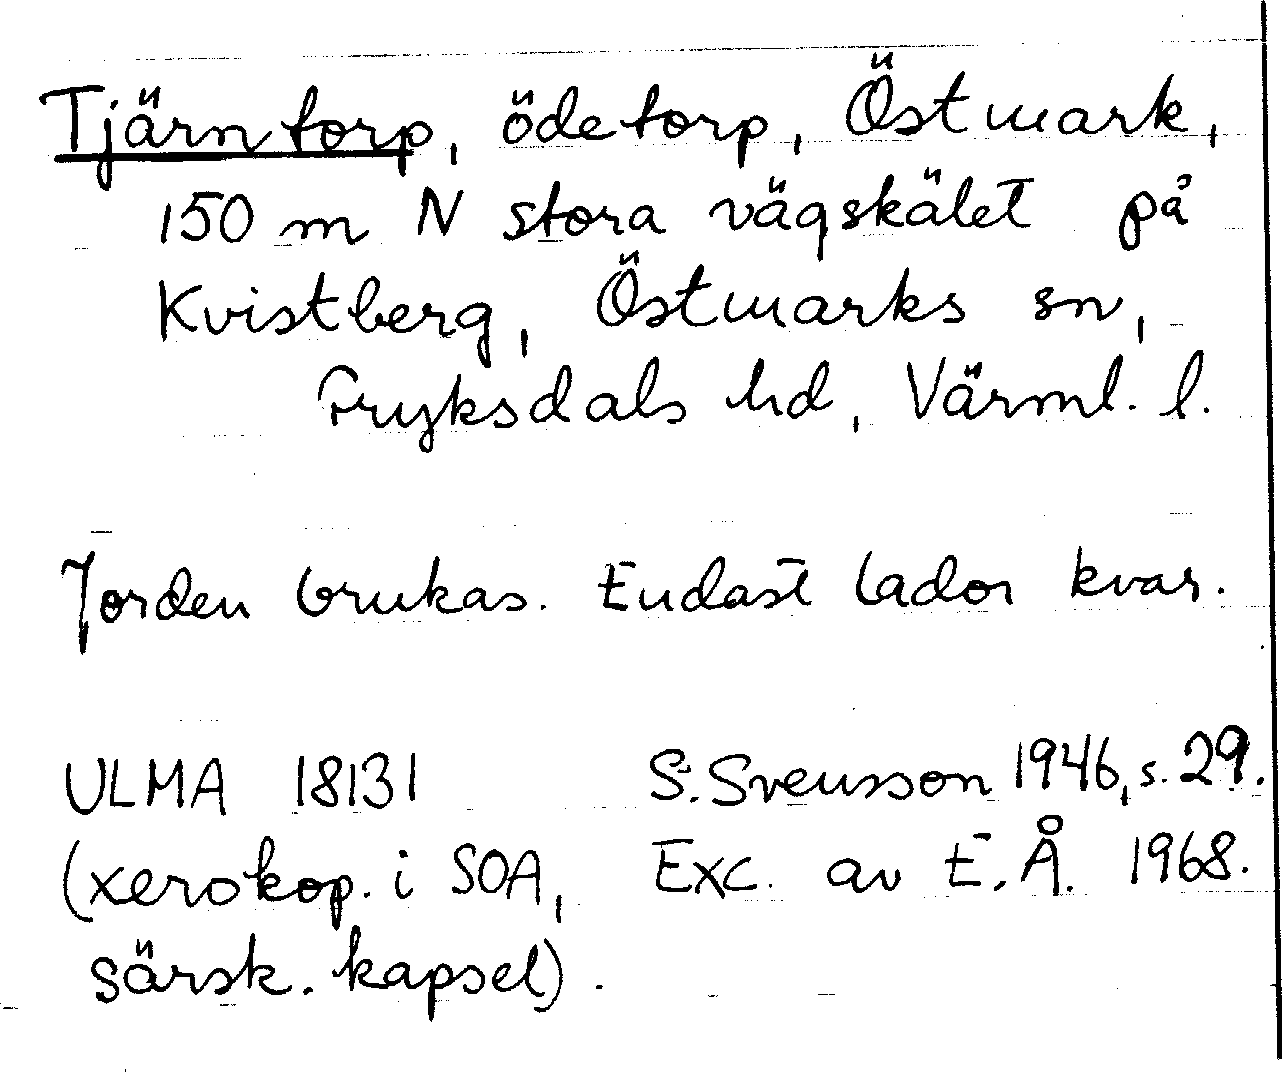 Tjärntorp, ödetorp, Östmark,
150 m N stora vägskälet på
Kvistberg, Östmarks sn,
Fryksdals hd, Värml. l.
Jorden brukas. Endast lador kvar.
ULMA 18131 S. Svensson 1946, s. 29.
(xerokop. i SOA, Exc. av E. Å. 1968.
särsk. kapsel).